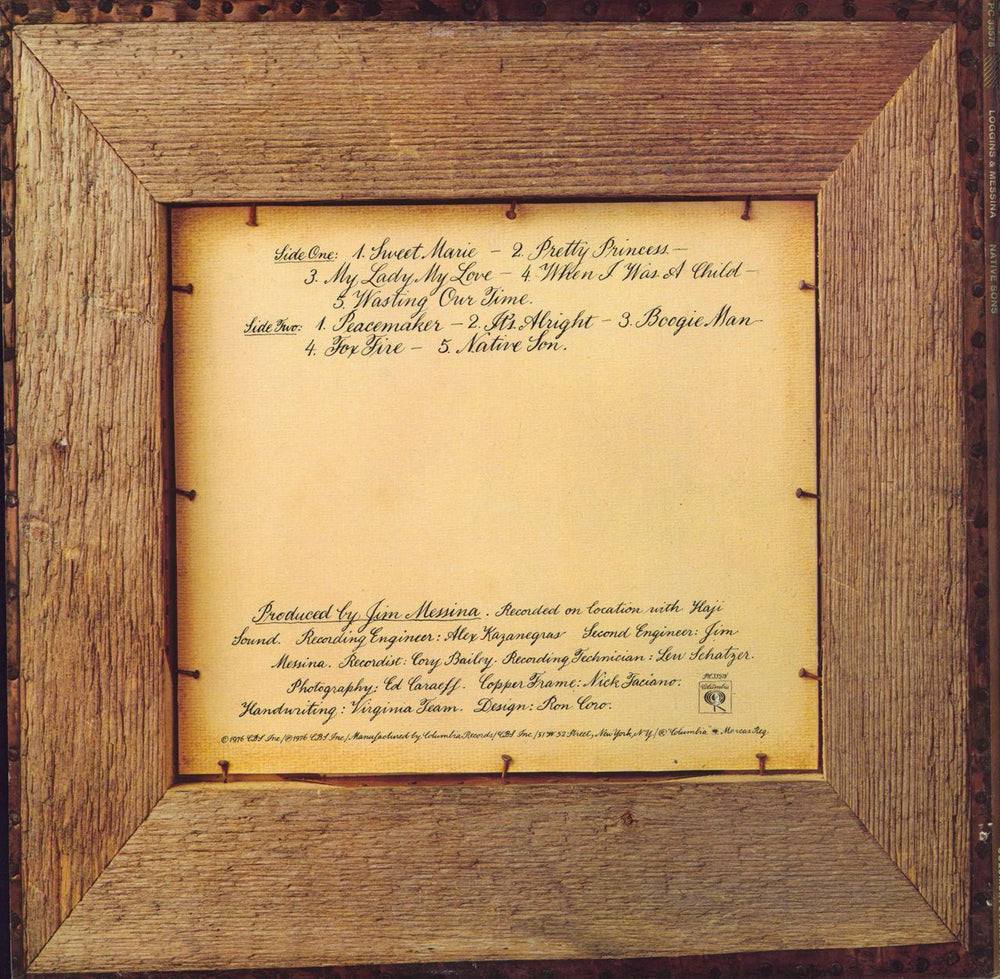 Side One: 1. Sweet Marie - 2. Pretty Princess -
3. My Lady, My Love - 4. When I Was A Child -
5. Wasting Our Time.
Side Two: 1. Peacemaker - 2. It's Alright - 3. Boogie Man -
4. Fox Fire - 5. Native Son.
Produced by Jim Messina. Recorded on location with Haji
Sound. Recording Engineer: Alex Kazanegras Second Engineer: Jim
Messina. Recordist: Cory Bailey. Recording Technician: Lew Schatzer.
Photography: Ed Caraeff. Copper Frame: Nick Faciano.
Handwriting: Virginia Team. Design: Ron Coro.
PC 33578
Columbia
© 1976 CBS Inc./℗ 1976 CBS Inc./Manufactured by Columbia Records/CBS Inc./51 W 52 Street, New York, N.Y./® "Columbia", Marcas Reg.
PC 33578
LOGGINS & MESSINA NATIVE SONS